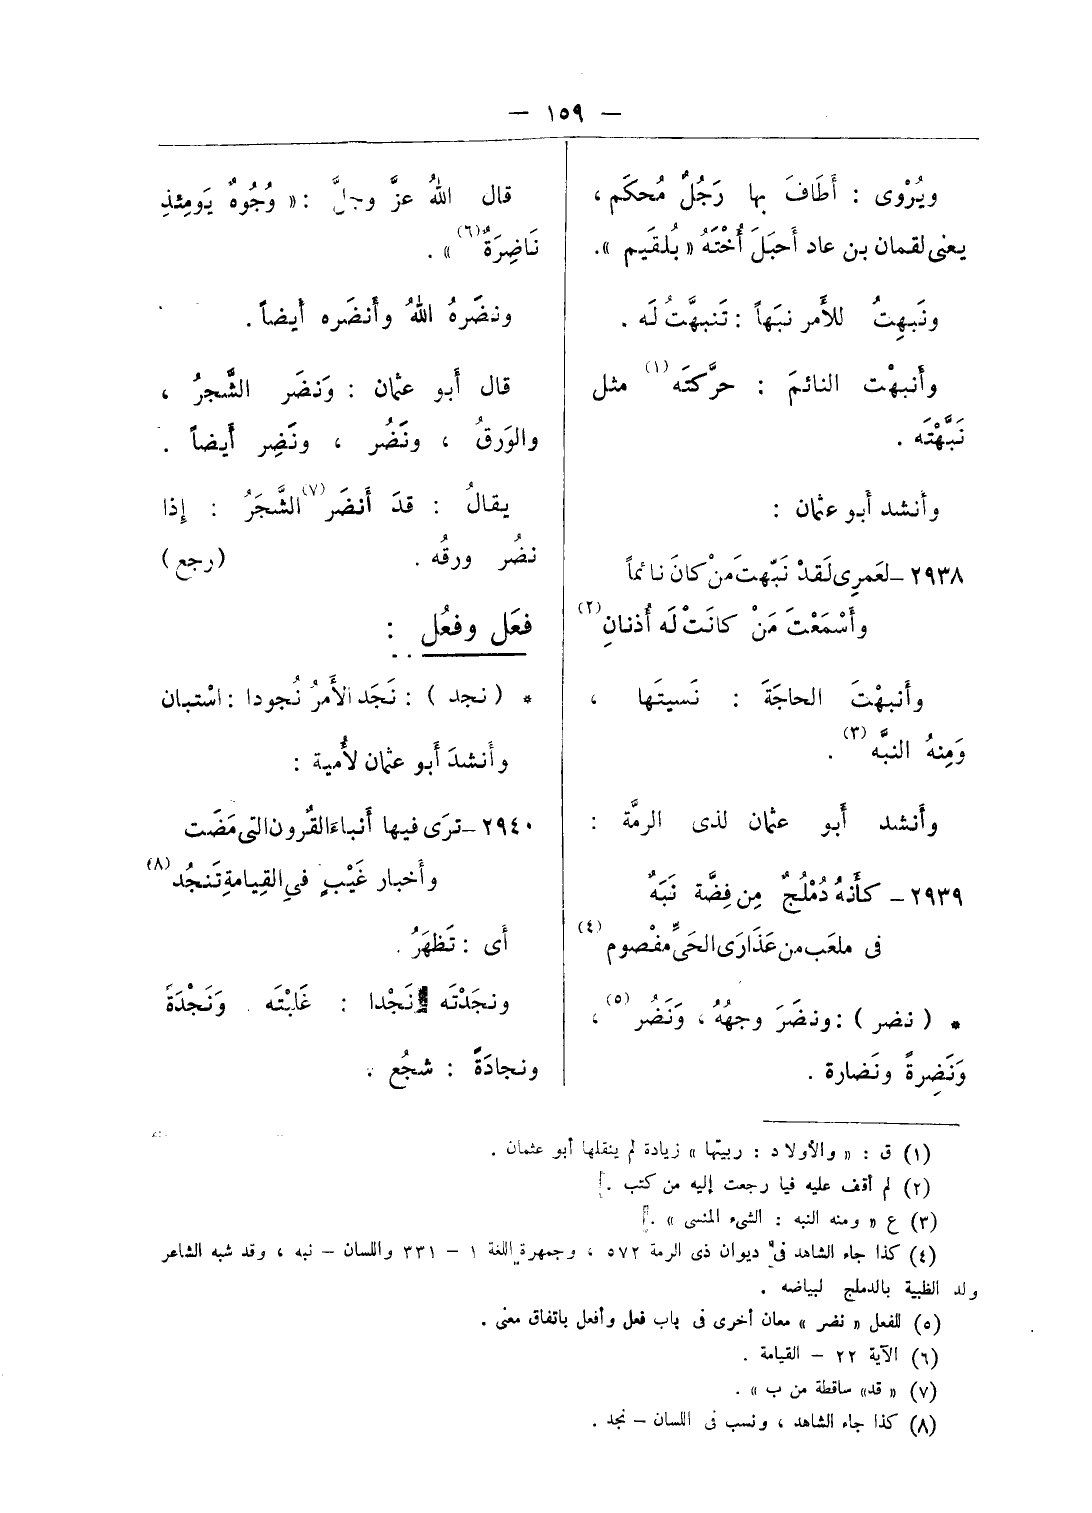 — ١٥٩ —
ويُرْوى : أَطَافَ بها رَجُلٌ مُحكَم ،
يعنى لقمان بن عاد أَحبَلَ أُخْتَهُ « بُلقَيم » .
ونَبِهتُ للأَمر نبَهاً : تَنبهَّتُ لَه .
وأَنبهْت النائمَ : حرَّكتَه (١) مثل
نَبَّهْتَه .
وأنشد أبو عثمان :
٢٩٣٨ – لعَمرِى لَقدْ نَبّهتَ منْ كانَ نائماً
وأَسْمَعْتَ مَنْ كانَتْ لَه أُذنانِ (٢)
وأَنبهْتَ الحاجَةَ : نَسيتَها ،
وَمِنهُ النبَّه (٣) .
وأنشد أَبو عثمان لذى الرمَّة :
٢٩٣٩ – كأَنهُ دُمْلُجٌ مِن فِضَّة نَبَهٌ
فى ملعَب من عَذَارَى الحَىِّ مفْصوم (٤)
* ( نضر ) : ونضَرَ وجهُهُ ، وَنَضُر (٥) ،
وَنَضِرةً ونَضارة .
قال اللهُ عزَّ وجلَّ : « وُجُوهٌ يَومئذِ
نَاضِرَةٌ (٦) » .
ونضَرهُ اللهُ وأَنضَره أَيضاً .
قال أَبو عثمان : وَنضَر الشَّجرُ ،
والوَرقُ ، ونَضُر ، ونَضِر أَيضاً .
يقالُ : قدَ أَنضَر (٧) الشَّجَرُ : إِذا
نضُر ورقُه . ( رجع )
فعَل وفعُل :
* ( نجد ) : نَجَد الأَمرُ نُجودا : اسْتبان
وأَنشدَ أبو عثمان لأُمية :
٢٩٤٠ – ترَى فيها أَنباءَ القُرون التى مَضَت
وأَخبار غَيْبٍ في القِيامةِ تَنجُد (٨)
أى : تَظهَرُ .
ونجَدْتَه نَجْدا : غَابْتَه . وَنَجْدَةً
ونجادَةً : شجُع .
(١) ق : « والأولاد : ربيتها » زيادة لم ينقلها أبو عثمان .
(٢) لم أقف عليه فيا رجعت إليه من كتب .
(٣) ع « ومنه النبه : الشىء المنسى » .
(٤) كذا جاء الشاهد فى ديوان ذى الرمة ٥٧٢ ، وجمهرة اللغة ١ – ٣٣١ واللسان – نبه ، وقد شبه الشاعر
ولد الظبية بالدملج لبياضه .
(٥) للفعل « نضر » معان أخرى فى باب فعل وأفعل باتفاق معنى .
(٦) الآية ٢٢ – القيامة .
(٧) « قد» ساقطة من ب » .
(٨) كذا جاء الشاهد ، ونسب فى اللسان – نجد .